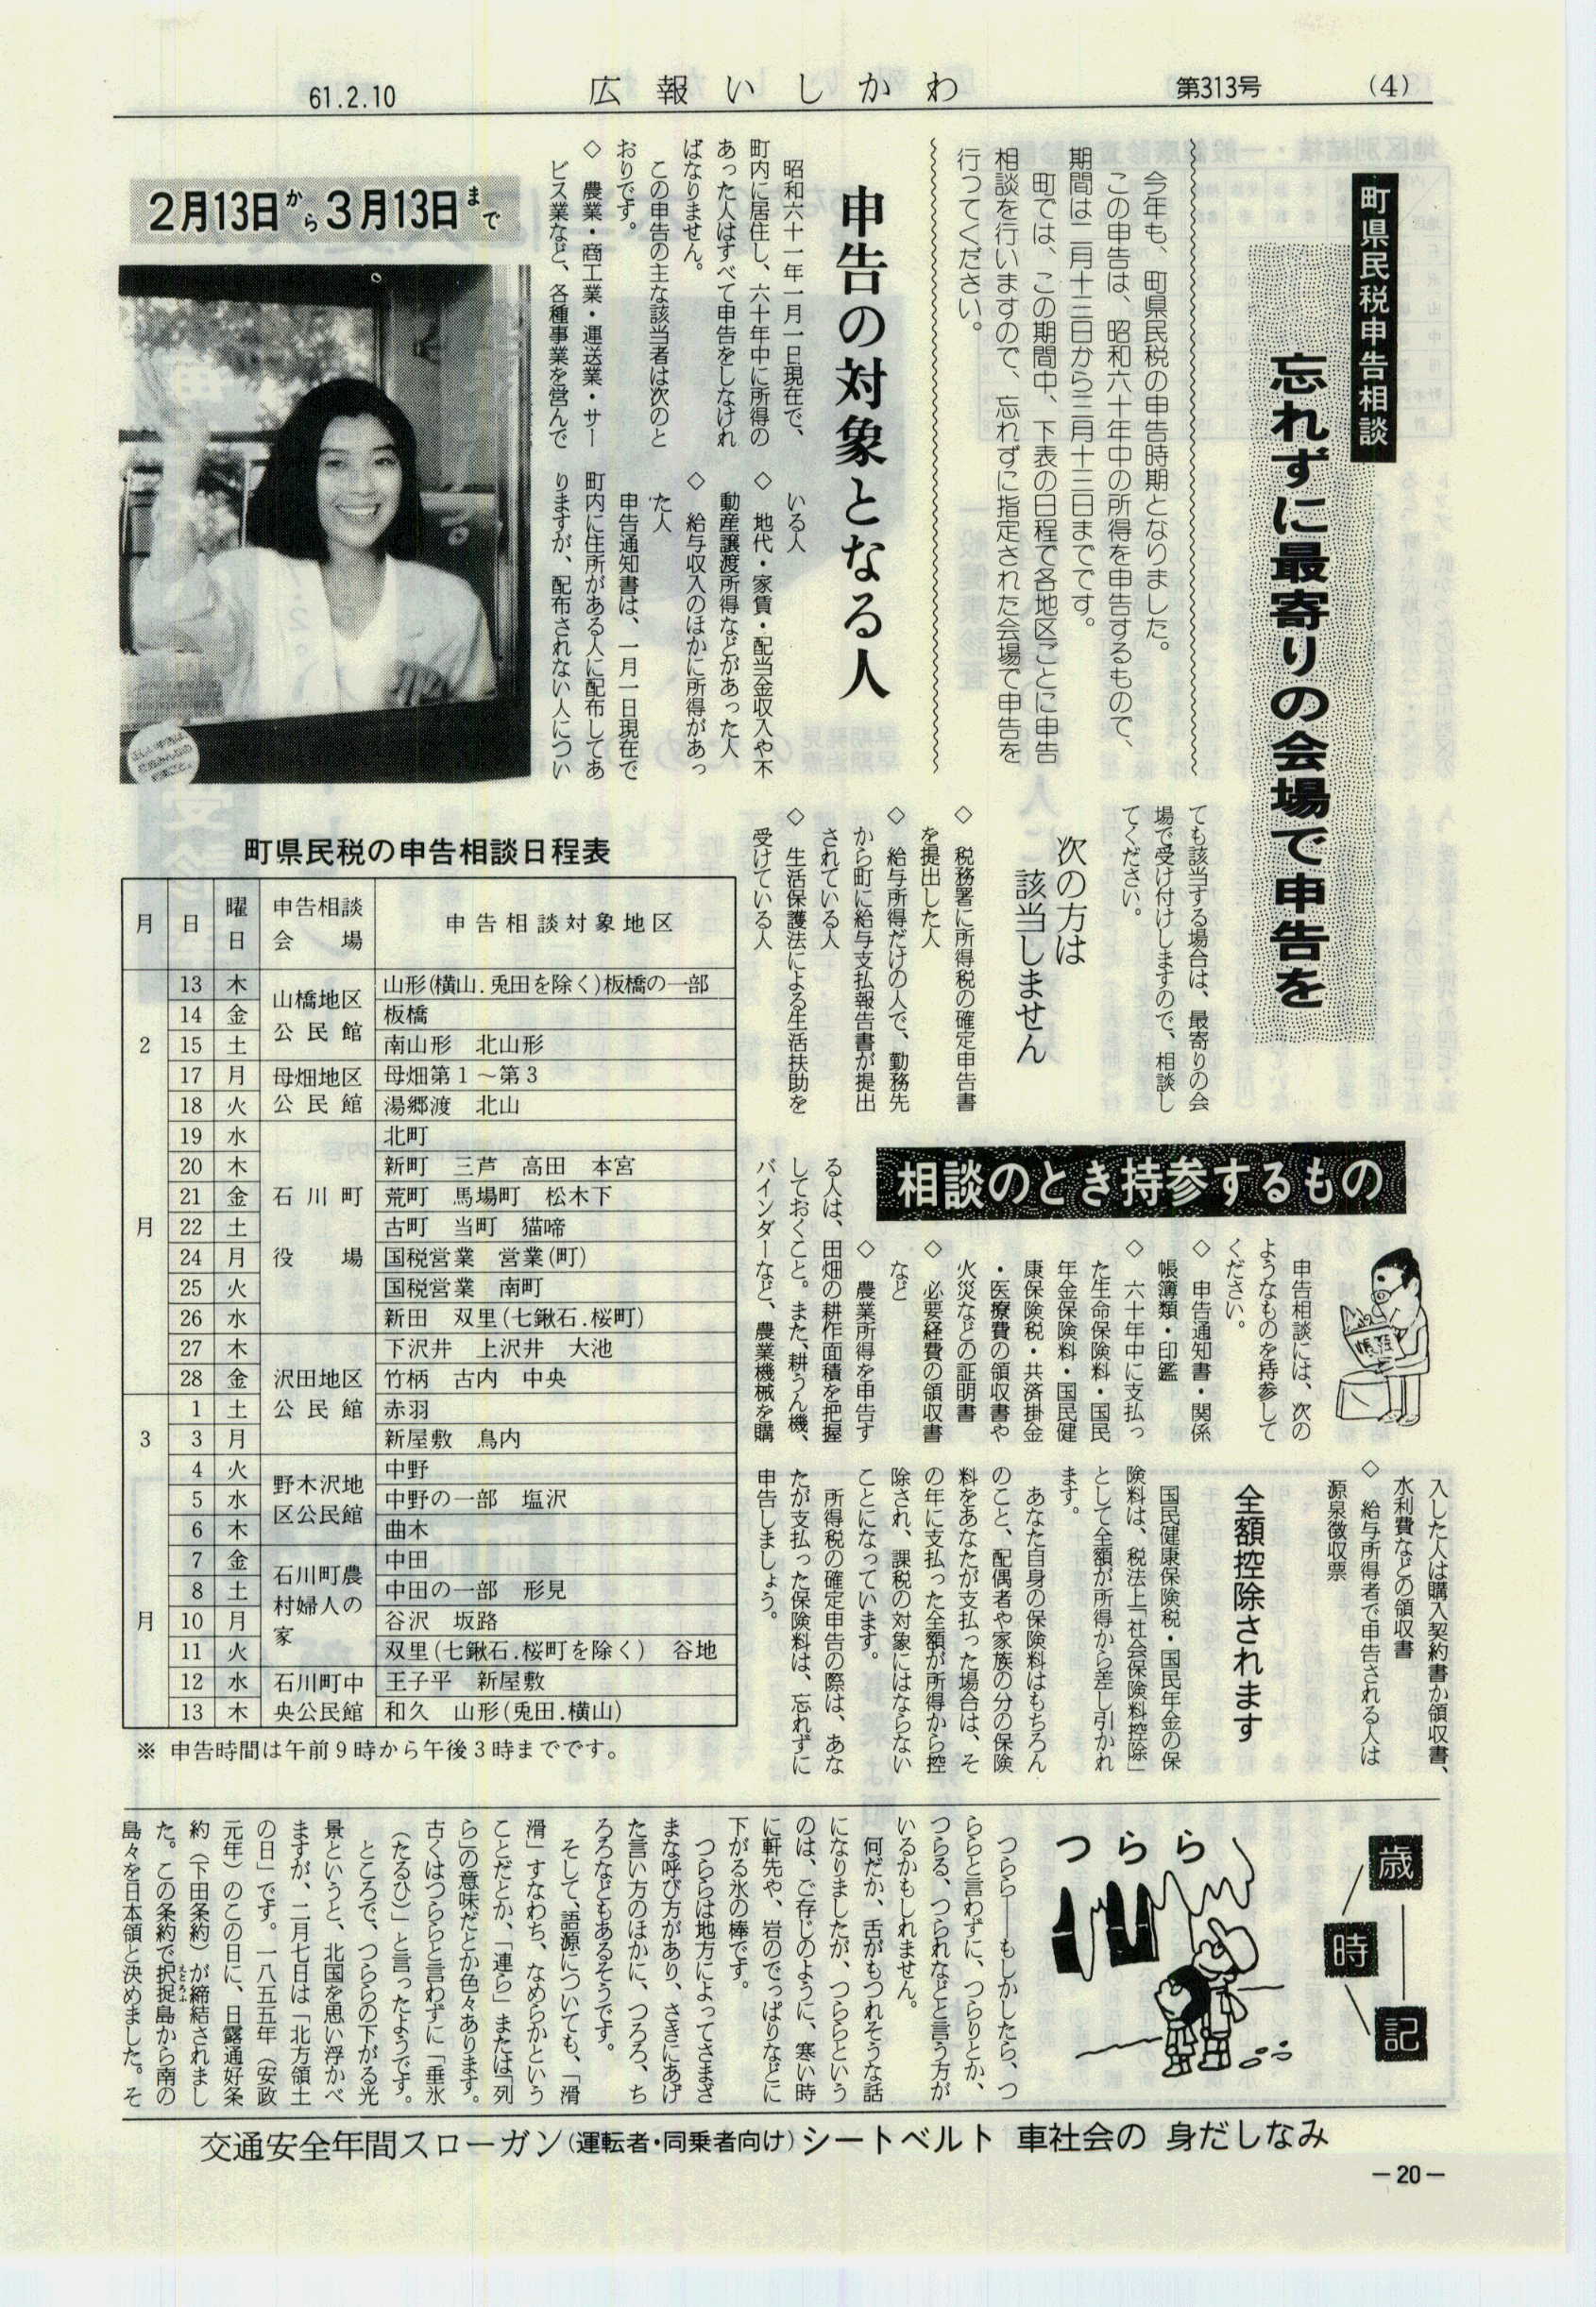 61.2.10
広報いしかわ
第313号
(4)
町県民税申告相談
忘れずに最寄りの会場で申告を
今年も、町県民税の申告時期となりました。
この申告は、昭和六十年中の所得を申告するもので、
期間は二月十三日から三月十三日までです。
町では、この期間中、下表の日程で各地区ごとに申告
相談を行いますので、忘れずに指定された会場で申告を
行ってください。
申告の対象となる人
昭和六十一年一月一日現在で、
町内に居住し、六十年中に所得の
あった人はすべて申告をしなけれ
ばなりません。
この申告の主な該当者は次のと
おりです。
◇ 農業・商工業・運送業・サー
ビス業など、各種事業を営んで
いる人
◇ 地代・家賃・配当金収入や不
動産譲渡所得などがあった人
◇ 給与収入のほかに所得があっ
た人
申告通知書は、一月一日現在で
町内に住所がある人に配布してあ
りますが、配布されない人につい
ても該当する場合は、最寄りの会
場で受け付けしますので、相談し
てください。
2月13日から3月13日まで
次の方は
該当しません
◇ 税務署に所得税の確定申告書
を提出した人
◇ 給与所得だけの人で、勤務先
から町に給与支払報告書が提出
されている人
◇ 生活保護法による生活扶助を
受けている人
相談のとき持参するもの
申告相談には、次の
ようなものを持参して
ください。
◇ 申告通知書・関係
帳簿類・印鑑
◇ 六十年中に支払っ
た生命保険料・国民
年金保険料・国民健
康保険税・共済掛金
・医療費の領収書や
火災などの証明書
◇ 必要経費の領収書
など
◇ 農業所得を申告す
る人は、田畑の耕作面積を把握
しておくこと。また、耕うん機、
バインダーなど、農業機械を購
入した人は購入契約書か領収書、
水利費などの領収書
◇ 給与所得者で申告される人は
源泉徴収票
帳簿
全額控除されます
国民健康保険税・国民年金の保
険料は、税法上「社会保険料控除」
として全額が所得から差し引かれ
ます。
あなた自身の保険料はもちろん
のこと、配偶者や家族の分の保険
料をあなたが支払った場合は、そ
の年に支払った全額が所得から控
除され、課税の対象にはならない
ことになっています。
所得税の確定申告の際は、あな
たが支払った保険料は、忘れずに
申告しましょう。
町県民税の申告相談日程表
月 日 曜日 申告相談会場 申告相談対象地区
2月 13 木 山橋地区公民館 山形(横山.兎田を除く)板橋の一部
14 金 板橋
15 土 南山形 北山形
17 月 母畑地区公民館 母畑第1〜第3
18 火 湯郷渡 北山
19 水 石川町役場 北町
20 木 新町 三芦 高田 本宮
21 金 荒町 馬場町 松木下
22 土 古町 当町 猫啼
24 月 国税営業 営業(町)
25 火 国税営業 南町
26 水 新田 双里(七鍬石.桜町)
27 木 沢田地区公民館 下沢井 上沢井 大池
28 金 竹柄 古内 中央
3月 1 土 赤羽
3 月 新屋敷 鳥内
4 火 野木沢地区公民館 中野
5 水 中野の一部 塩沢
6 木 曲木
7 金 石川町農村婦人の家 中田
8 土 中田の一部 形見
10 月 谷沢 坂路
11 火 双里(七鍬石.桜町を除く) 谷地
12 水 石川町中央公民館 王子平 新屋敷
13 木 和久 山形(兎田.横山)
※ 申告時間は午前9時から午後3時までです。
歳時記
つらら
つらら――もしかしたら、つ
ららと言わずに、つらりとか、
つらる、つられなどと言う方が
いるかもしれません。
何だか、舌がもつれそうな話
になりましたが、つららという
のは、ご存じのように、寒い時
に軒先や、岩のでっぱりなどに
下がる氷の棒です。
つららは地方によってさまざ
まな呼び方があり、さきにあげ
た言い方のほかに、つろろ、ち
ろろなどもあるそうです。
そして、語源についても、「滑
滑」すなわち、なめらかという
ことだとか、「連ら」または「列
ら」の意味だとか色々あります。
古くはつららと言わずに「垂氷
(たるひ)」と言ったようです。
ところで、つららの下がる光
景というと、北国を思い浮かべ
ますが、二月七日は「北方領土
の日」です。一八五五年(安政
元年)のこの日に、日露通好条
約(下田条約)が締結されまし
た。この条約で択捉島から南の
島々を日本領と決めました。そ
交通安全年間スローガン(運転者・同乗者向け)シートベルト 車社会の 身だしなみ
－20－